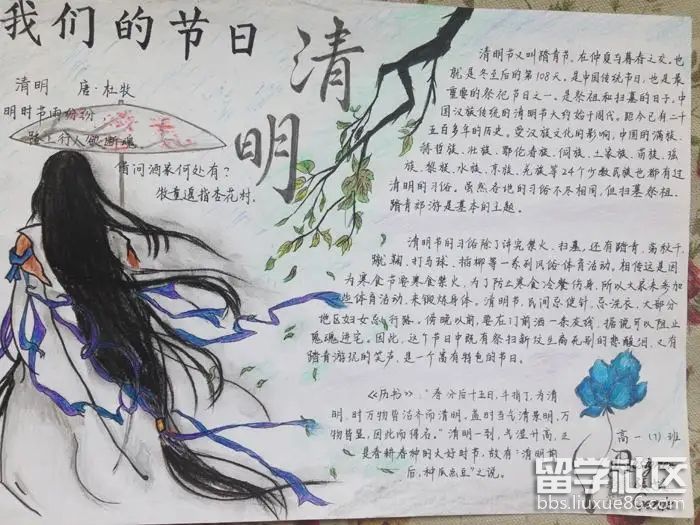 我们的节日
清明
清明 唐·杜牧
明时节雨纷纷
路上行人欲断魂
借问酒家何处有?
牧童遥指杏花村.
清明节又叫踏青节,在仲夏与暮春之交,也
就是冬至后的第108天。是中国传统节日,也是最
重要的祭祀节日之一。是祭祖和扫墓的日子。中
国汉族传统的清明节大约始于周代,距今已有二千
五百多年的历史。受汉族文化的影响,中国的满族、
赫哲族、壮族、鄂伦春族、侗族、土家族、苗族、瑶
族、黎族、水族、京族、羌族等24个少数民族也都有过
清明的习俗。虽然各地的习俗不尽相同,但扫墓祭祖、
踏青郊游是基本的主题。
清明节的习俗除了讲究禁火、扫墓,还有踏青、荡秋千、
蹴鞠、打马球、插柳等一系列风俗体育活动。相传这是因
为寒食节要寒食禁火,为了防止寒食冷餐伤身,所以大家来参加
些体育活动,来锻炼身体。清明节,民间忌使针,忌洗衣,大部分
地区妇女忌行路。傍晚以前,要在门前洒一条灰线,据说可以阻止
鬼魂进宅。因此,这个节日中既有祭扫新坟生离死别的悲酸泪,又有
踏青游玩的笑声,是一个富有特色的节日。
《历书》:"春分后十五日,斗指丁,为清
明,时万物皆洁齐而清明,盖时当气清景明,万
物皆显,因此而得名。"清明一到,气温升高,正
是春耕春种的大好时节,故有"清明前
后,种瓜点豆"之说。
高一(7)班
留学社区
bbs.liuxue86.com